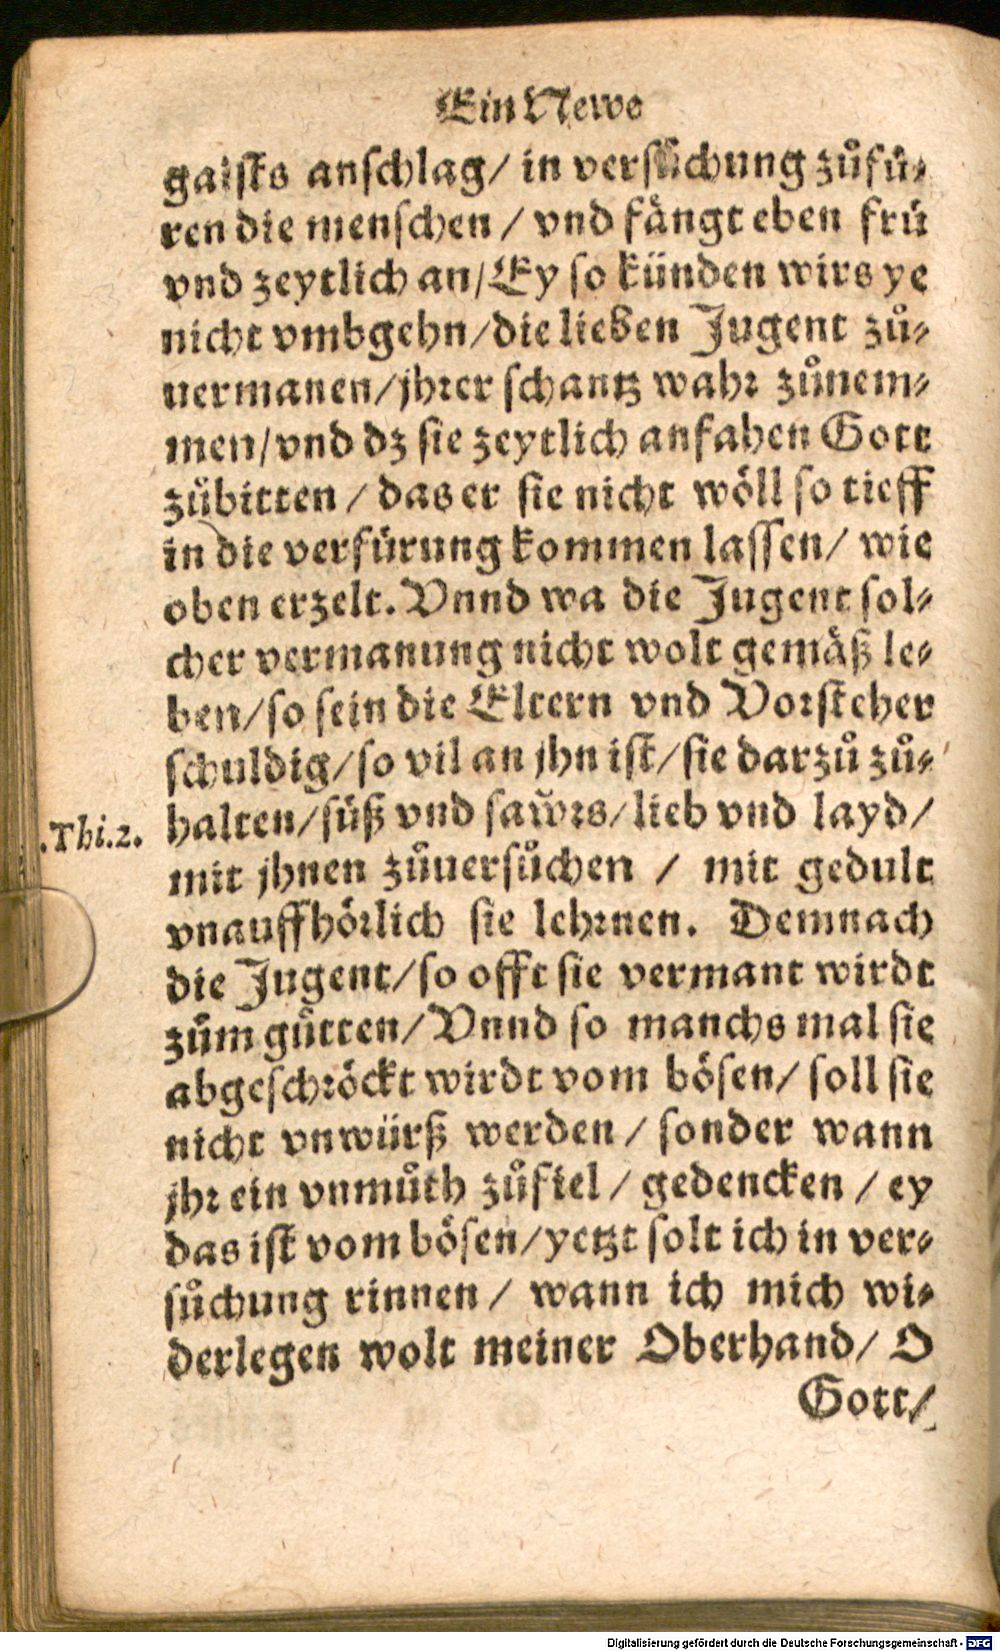 Ein Newe
gaiſts anſchlag/ in verſuͦchung zuͦfuͤ⸗
ren die menſchen / vnd fängt eben fruͤ
vnd zeytlich an/ Ey ſo künden wirs ye
nicht vmbgehn/die lieben Jugent zuͦ⸗
uermanen/jhrer ſchantz wahr zuͦnem⸗
men/vnd dz ſie zeytlich anfahen Gott
zuͦbitten / das er ſie nicht wöll ſo tieff
in die verfuͤrung kommen laſſen/ wie
oben erzelt. Vnnd wa die Jugent ſol⸗
cher vermanung nicht wolt gemäß le⸗
ben/ſo ſein die Eltern vnd Vorſteher
ſchuldig/ſo vil an jhn iſt/ſie darzuͦ zuͦ⸗
.Thi.2.
halten/ſuͤß vnd ſaw̃rs/lieb vnd layd/
mit jhnen zuͦuerſuͦchen / mit gedult
vnauffhörlich ſie lehrnen. Demnach
die Jugent/ſo offt ſie vermant wirdt
zuͦm guͤtten/ Vnnd ſo manchs mal ſie
abgeſchröckt wirdt vom böſen/ ſoll ſie
nicht vnwürß werden / ſonder wann
jhr ein vnmuͦth zuͦfiel / gedencken / ey
das iſt vom böſen/yetzt ſolt ich in ver⸗
ſuͦchung rinnen / wann ich mich wi⸗
derlegen wolt meiner Oberhand/ O
Gott/
Digitalisierung gefördert durch die Deutsche Forschungsgemeinschaft - DFG